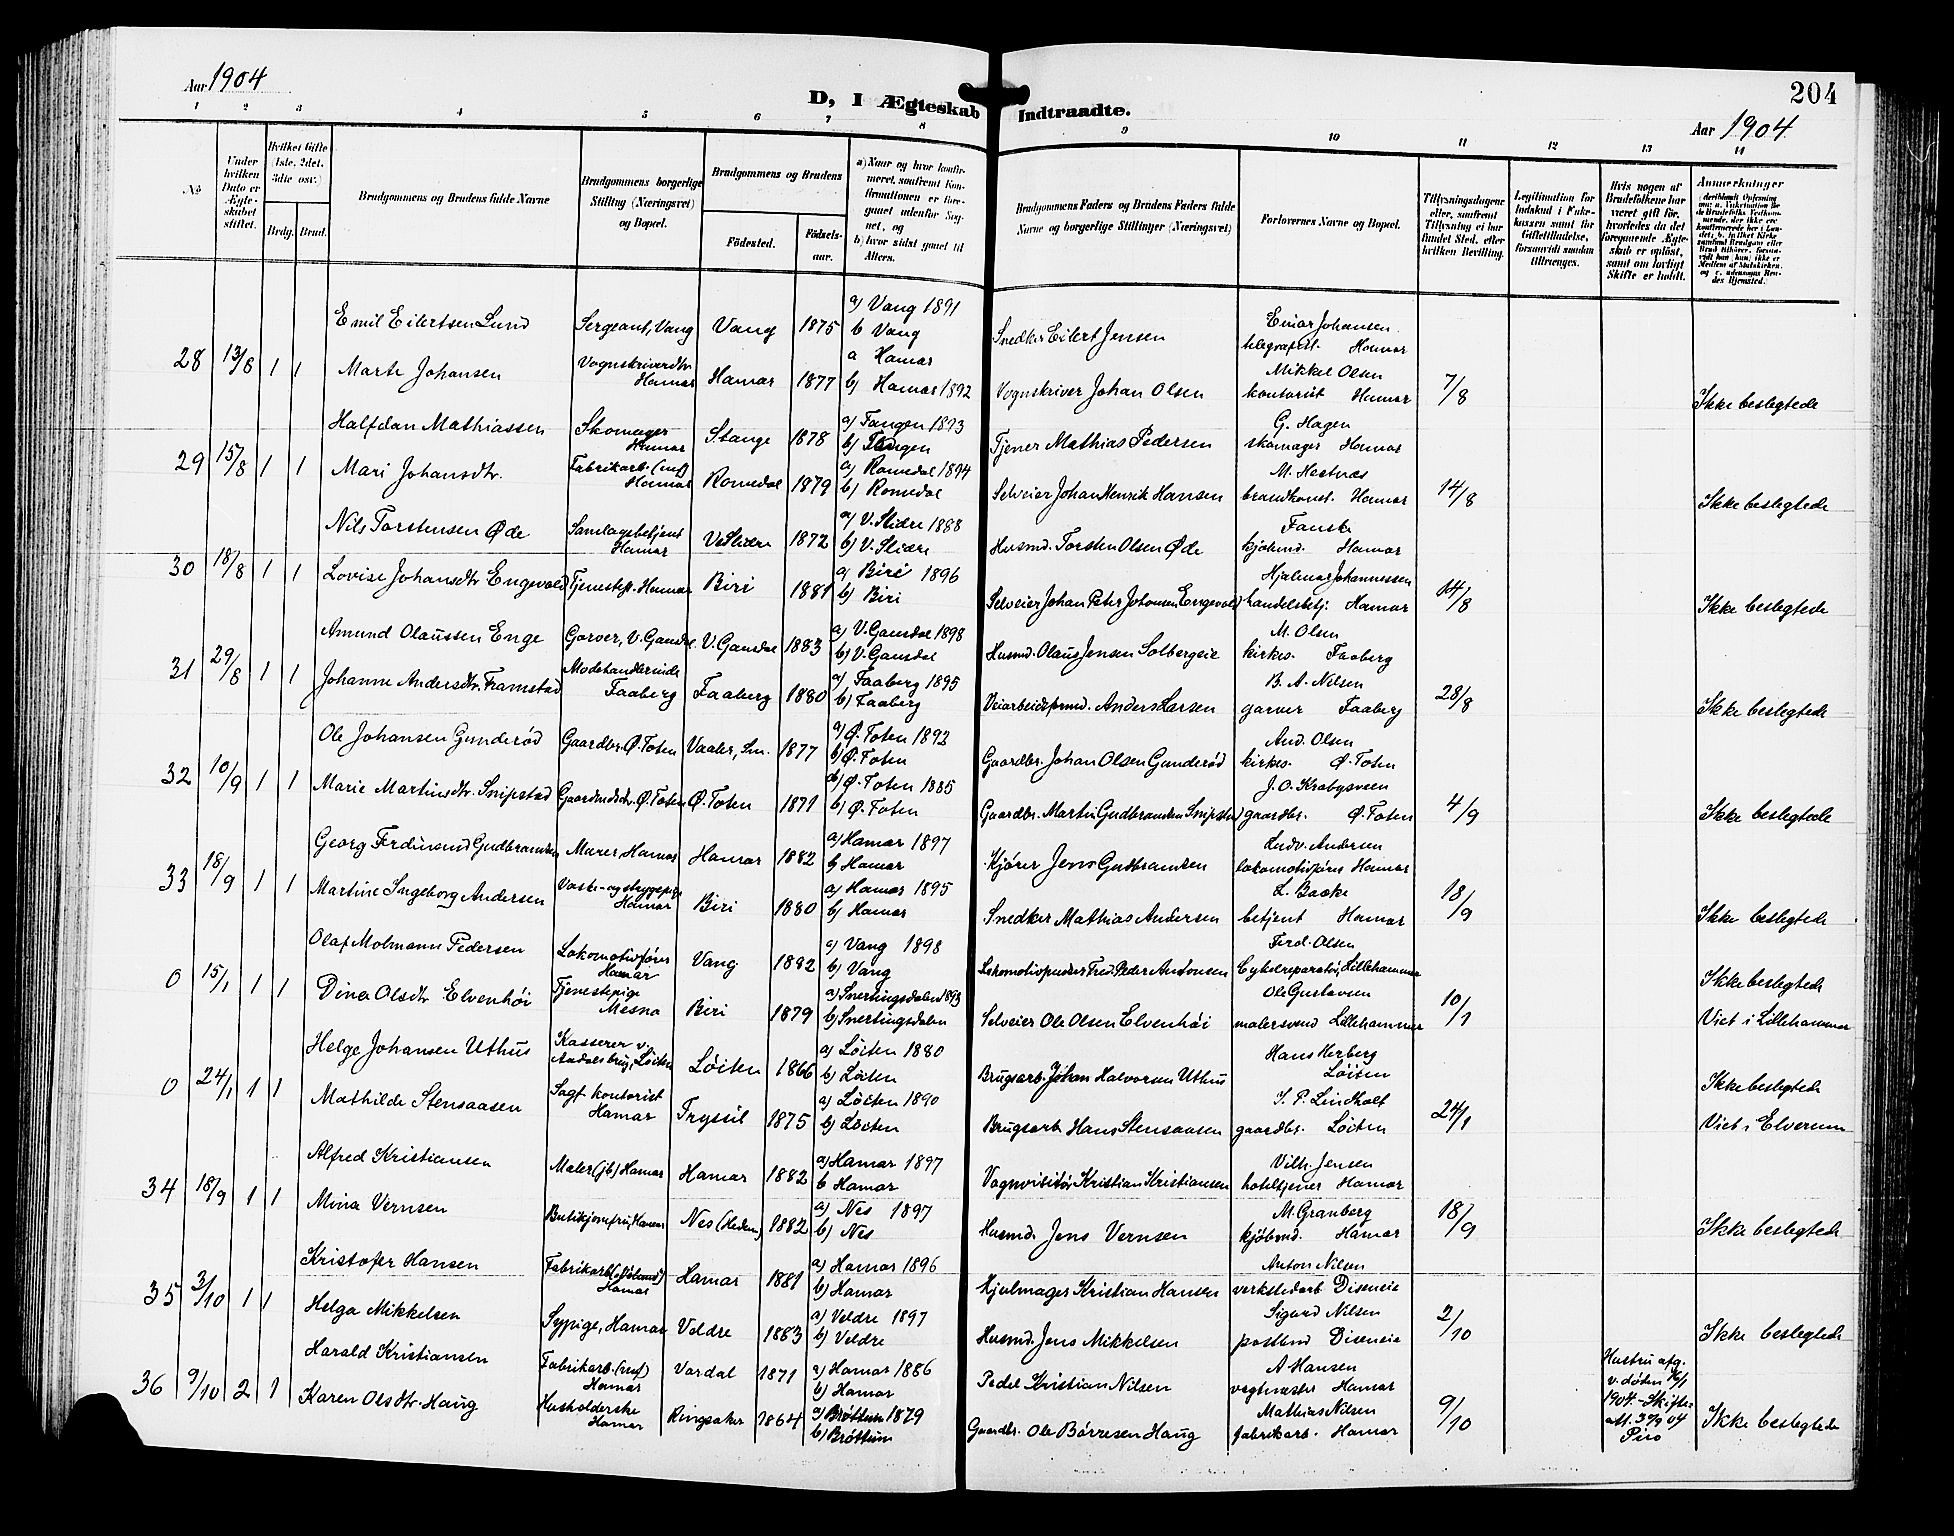 Aar 1904
D, I Ægteskab Indtraadte.
204
Aar 1904
1 2 3 4 5 6 7 8 9 10 11 12 13 14
No
Under hvilken Dato er Ægteskabet stiftet.
Hvilket Gifte 1ste, 2det, 3die osv.)
Brdg. Brud.
Brudgommens og Brudens fulde Navne
Brudgommens borgerlige Stilling (Næringsvei) og Bopæl.
Brudgommens og Brudens
Fødested. Fødselsaar.
a) Naar og hvor konfirmeret, saafremt Konfirmationen er foregaaet udenfor Sognet, og b) hvor sidst gaaet til Alters.
Brudgommens Faders og Brudens Faders fulde Navne og borgerlige Stillinger (Næringsvei)
Forlovernes Navne og Bopæl.
Tillysningsdagene eller, saafremt Tillysning ei har fundet Sted, efter hvilken Bevilling.
Legitimation for Indskud i Enkekassen samt for Giftetilladelse, forsaavidt saadan tiltrænges.
Hvis nogen af Brudefolkene har været gift før, hvorledes da det foregaaende Ægteskab er opløst, samt om lovligt Skifte er holdt.
Anmærkninger
28 13/8 1 1
Emil Eilertsen Lund Sergeant, Vang Vang 1875 a) Vang 1891 b Vang Snedker Eilert Jensen Einar Johansen telegrafist. Hamar
Marte Johansen Vognskriverdtr Hamar Hamar 1877 a Hamar b) Hamar 1892 Vognskriver Johan Olsen Mikkel Olsen kontorist Hamar 7/8 Ikke beslegtede
29 15/8 1 1
Halfdan Mathiassen Skomager Hamar Stange 1878 a) Tangen 1893 b) Tangen Tjener Mathias Pedersen G. Hagen skomager Hamar
Mari Johansdtr. Fabrikarb. Hamar Romedal 1879 a) Romedal 1894 b) Romedal Selveier Johan Henrik Hansen M. Hestnes brandkonst. Hamar 14/8 Ikke beslegtede
30 18/8 1 1
Nils Torstensen Øde Samlagsbetjent Hamar V. Slidre 1872 a) V. Slidre 1888 b) V. Slidre Husmd. Torsten Olsen Øde Fauske kjøbmd. Hamar
Lovise Johansdtr Engevold Tjenestep. Hamar Biri 1881 a) Biri 1896 b) Biri Selveier Johan Peter Johansen Engevold Hjalmar Johannessen handelsbetj. Hamar 14/8 Ikke beslegtede
31 29/8 1 1
Amund Olaussen Enge Garver, V. Gausdal V. Gausdal 1883 a) V. Gausdal 1898 b) V. Gausdal Husmd. Olaus Jensen Solbergeie M. Olsen kirkes. Faaberg
Johanne Andersdtr. Framstad Modehandlerinde Faaberg Faaberg 1880 a) Faaberg 1895 b) Faaberg Veiarbeidsformd. Anders Larsen B. A. Nilsen garver Faaberg 28/8 Ikke beslegtede
32 10/9 1 1
Ole Johansen Gunderød Gaardbr. Ø. Toten Vaaler, Sm. 1877 a) Ø. Toten 1892 b) Ø. Toten Gaardbr. Johan Olsen Gunderød And. Olsen kirkes. Ø. Toten
Marie Martinsdtr. Snipstad Gaardmdsdtr. Ø. Toten Ø. Toten 1871 a) Ø. Toten 1885 b) Ø. Toten Gaardbr. Martin Gudbrandsen Snipstad J. O. Krabysveen gaardbr. Ø. Toten 4/9 Ikke beslegtede
33 18/9 1 1
Georg Ferdinand Gudbrandsen Murer, Hamar Hamar 1882 a) Hamar 1897 b Hamar Kjører Jens Gudbrandsen Ludv. Andersen lokomotivfører Hamar
Martine Ingeborg Andersen Vaske- og strygepige Hamar Biri 1880 a) Hamar 1895 b) Hamar Snedker Mathias Andersen L. Bakke betjent Hamar 18/9 Ikke beslegtede
0 15/1 1 1
Olaf Molmann Pedersen Lokomotivfører Hamar Vang 1882 a) Vang 1898 b) Vang Lokomotivpudser Fred. Peder Antonsen Ferd. Olsen Cykelreparatør, Lillehammer Ikke beslegtede
Dina Olsdtr Elvenhøi Tjenestepige Mesna Biri 1879 a) Snertingsdalen 1893 b) Snertingsdalen Selveier Ole Olsen Elvenhøi Ole Gustavsen malersvend Lillehammer 10/1 Viet i Lillehammer
0 24/1 1 1
Helge Johansen Uthus Kasserer v. Aadalsbrug, Løiten Løiten 1866 a) Løiten 1880 b) Løiten Brugsarb. Johan Halvorsen Uthus Hans Herberg Løiten Ikke beslegtede
Mathilde Stensaasen Sagf. kontorist Hamar Tryssil 1875 a) Løiten 1890 b) Løiten Brugsarb Hans Stensaasen J. P. Lindholt gaardbr. Løiten 24/1 Viet i Elverum
34 18/9 1 1
Alfred Kristiansen Maler (jb) Hamar Hamar 1882 a) Hamar 1897 b Hamar Vognvisitør Kristian Kristiansen Vilh. Jensen hoteltjener Hamar
Mina Vernsen Butikjomfru, Hamar Nes (Hedem) 1882 a) Nes 1897 b) Nes Husmd. Jens Vernsen M. Granberg kjøbmd. Hamar 18/9 Ikke beslegtede
35 3/10 1 1
Kristofer Hansen Fabrikarb Hamar Hamar 1881 a) Hamar 1896 b) Hamar Hjulmager Kristian Hansen Anton Nilsen verkstedarb Diseneie
Helga Mikkelsen Sypige, Hamar Veldre 1883 a) Veldre 1897 b) Veldre Husmd. Jens Mikkelsen Sigurd Nilsen postbud Diseneie 2/10 Ikke beslegtede
36 9/10 2 1
Harald Kristiansen Fabrikarb. Hamar Vardal 1871 a) Hamar 1886 b) Hamar Pedel Kristian Nilsen A Hansen vagtmester Hamar
Karen Olsdtr. Haug Husholderske Hamar Ringsaker 1864 a) Brøttum 1879 b) Brøttum Gaardbr. Ole Børresen Haug Mathias Nilsen fabrikarb. Hamar 9/10 Hustru afg. v. døden 1904. - Skifteatt. 30/9 04 Ikke beslegtede